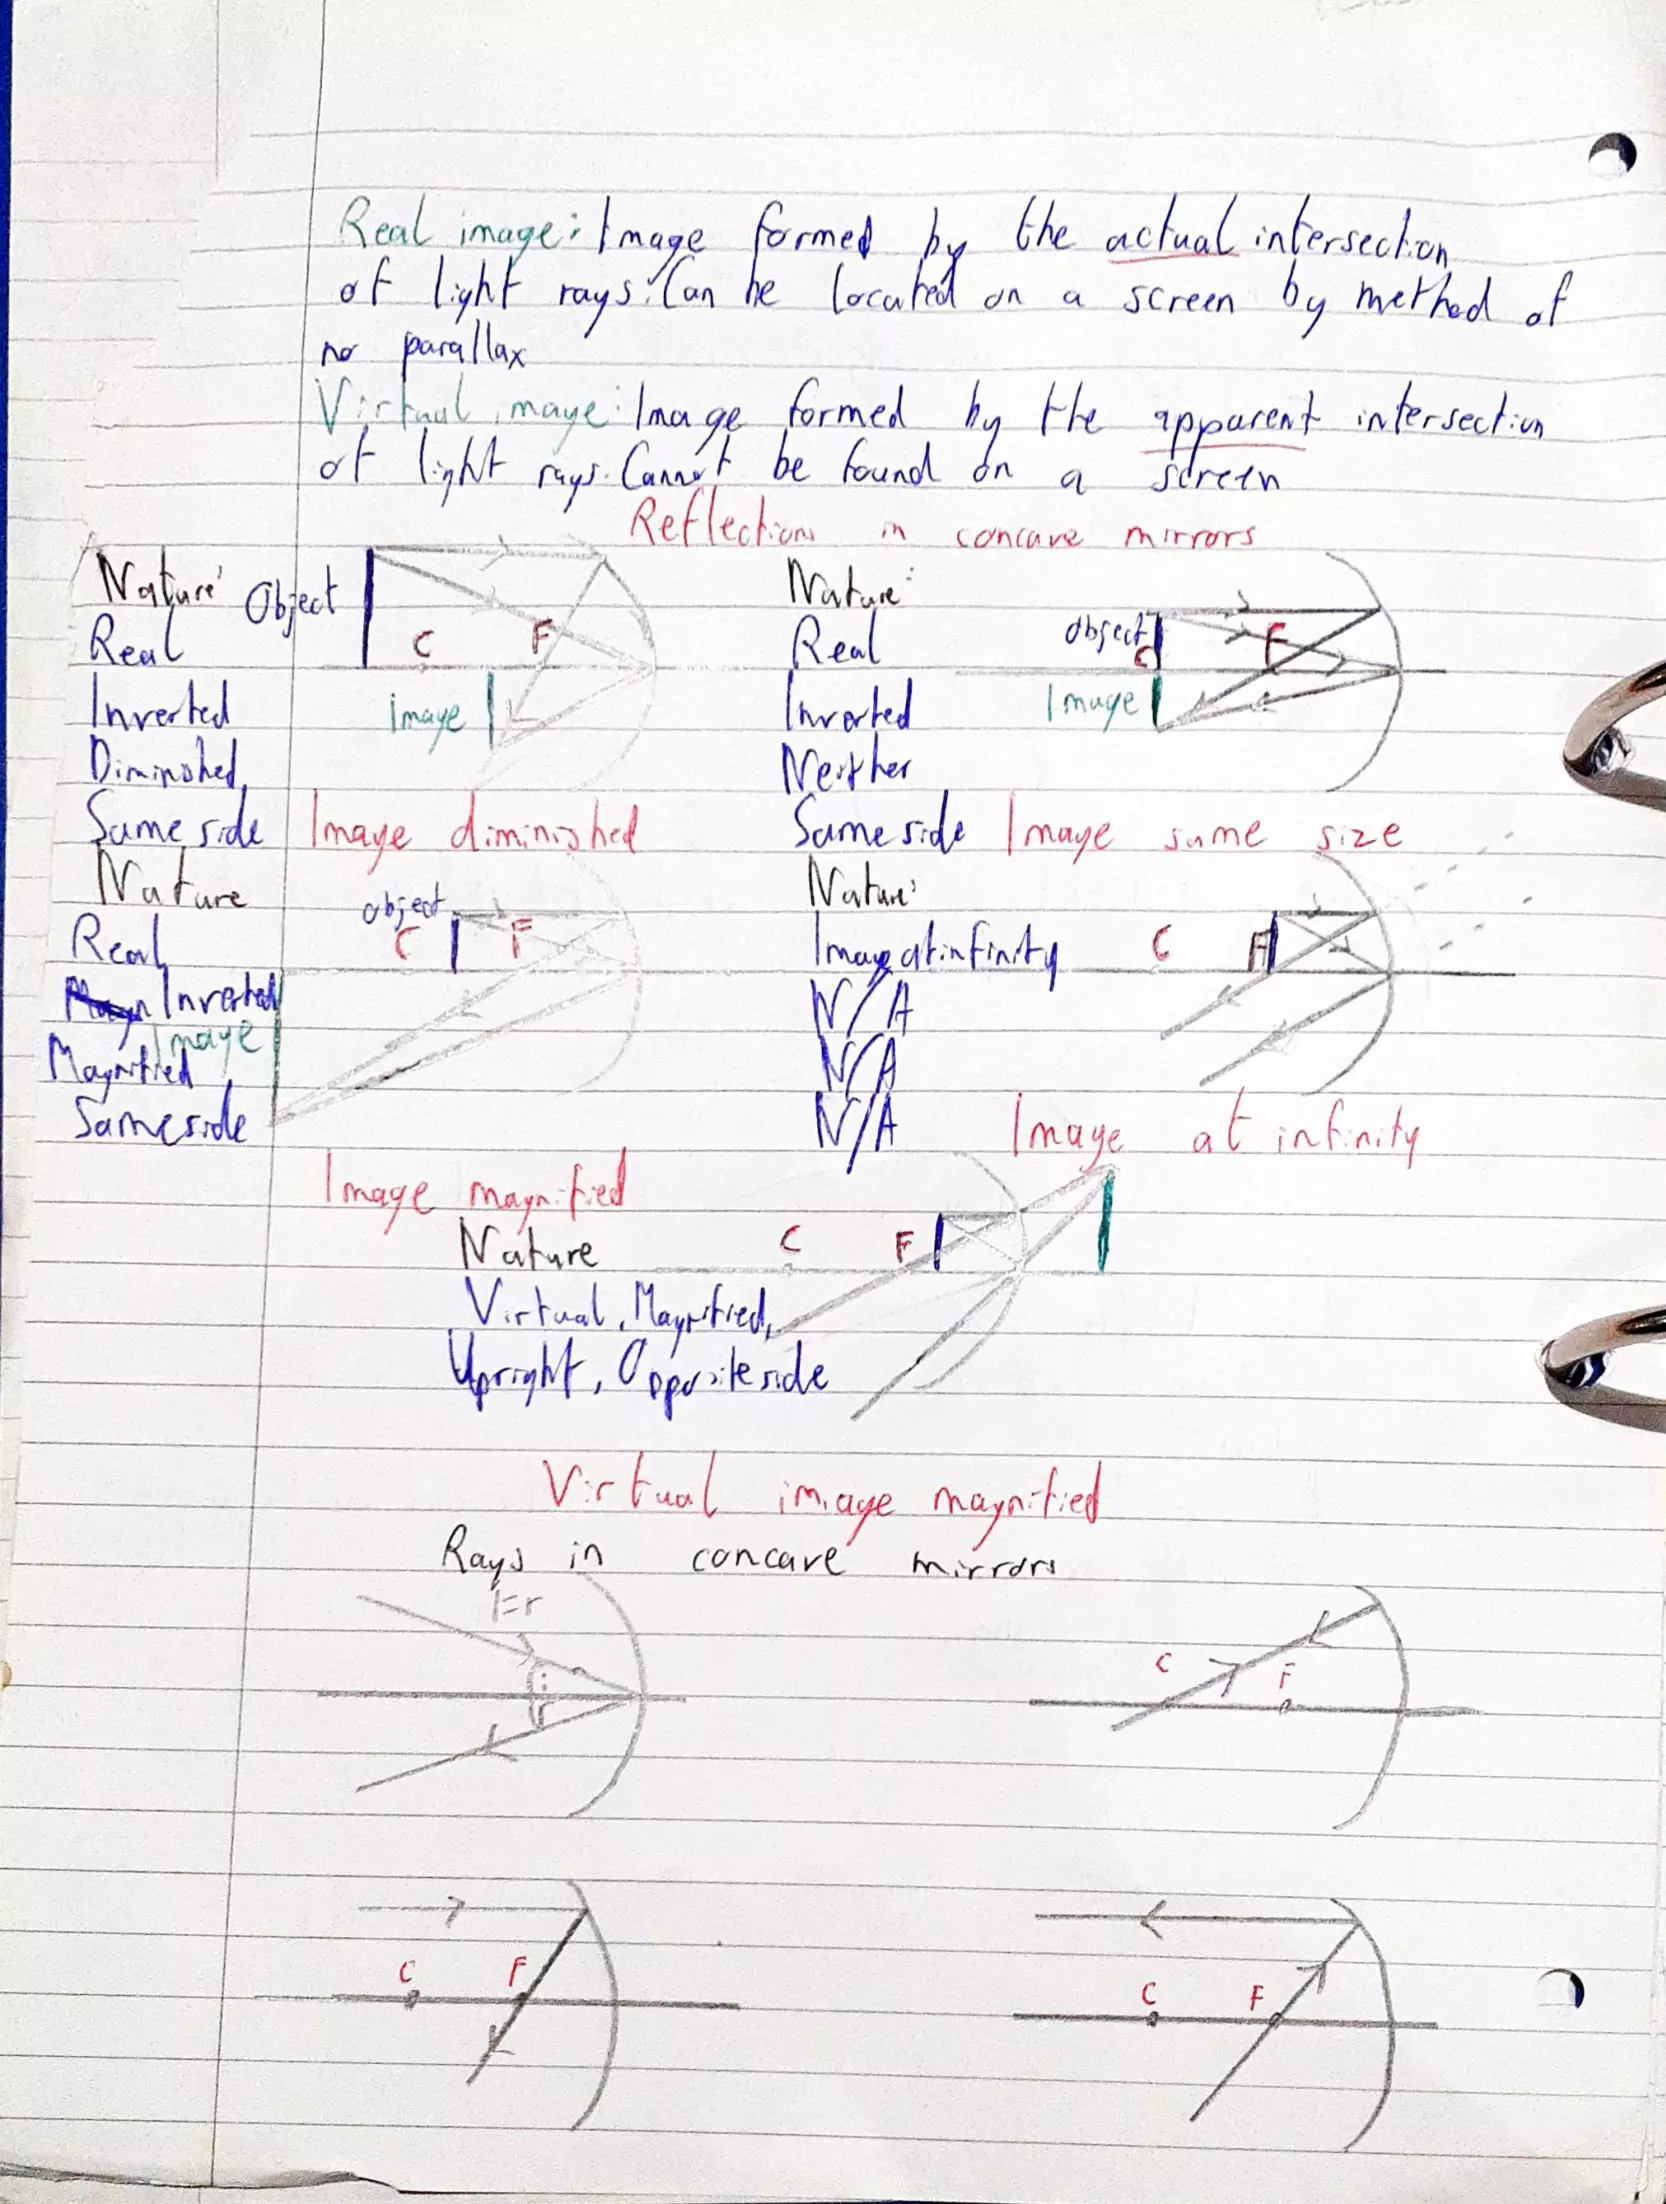 Real image: Image formed by the actual intersection
of light rays. Can be located on a screen by method of
no parallax
Virtual image: Image formed by the apparent intersection
of light rays. Cannot be found on a screen
Reflections in concave mirrors
Nature:
Real
Inverted
Diminished
Same side
Object
C
F
image
Image diminished
Nature:
Real
Inverted
Neither
Same side
object
C
F
Image
Image same size
Nature
Real
Inverted
Magnified
Same side
object
C
F
Image
Image magnified
Nature:
Image at infinity
N/A
N/A
N/A
C
F
Image at infinity
Nature
Virtual, Magnified,
Upright, Opposite side
C
F
Virtual image magnified
Rays in concave mirrors
i=r
i
r
C
F
C
F
C
F